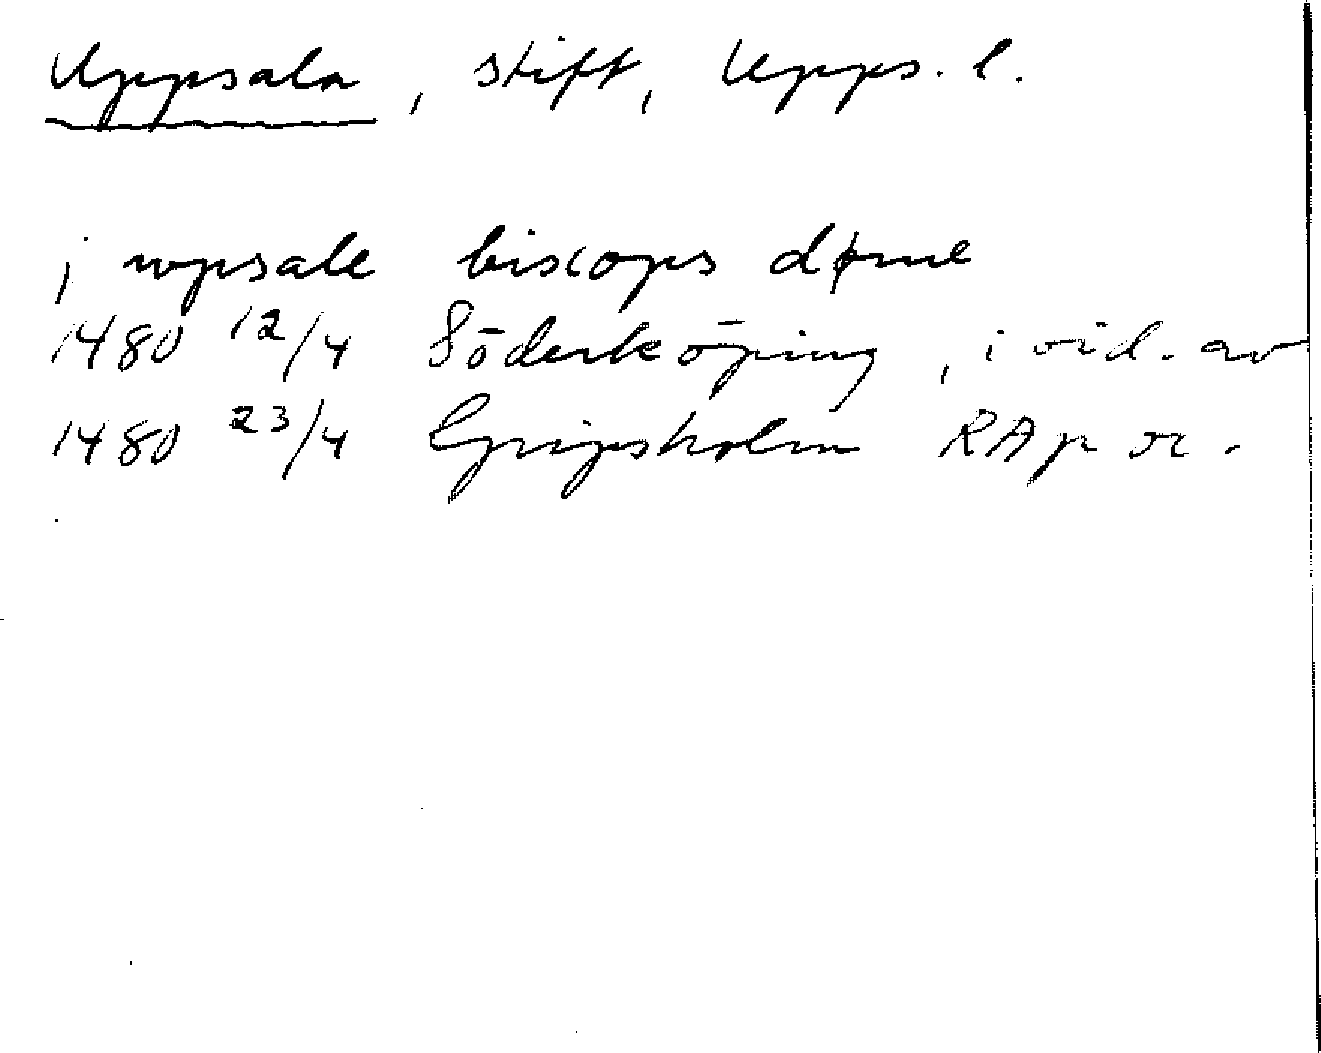 Uppsala, stift, Upps. l.
j wpsale biscops døme
1480 12/4 Söderköping, i vid. av
1480 23/4 Gripsholm RAp or.